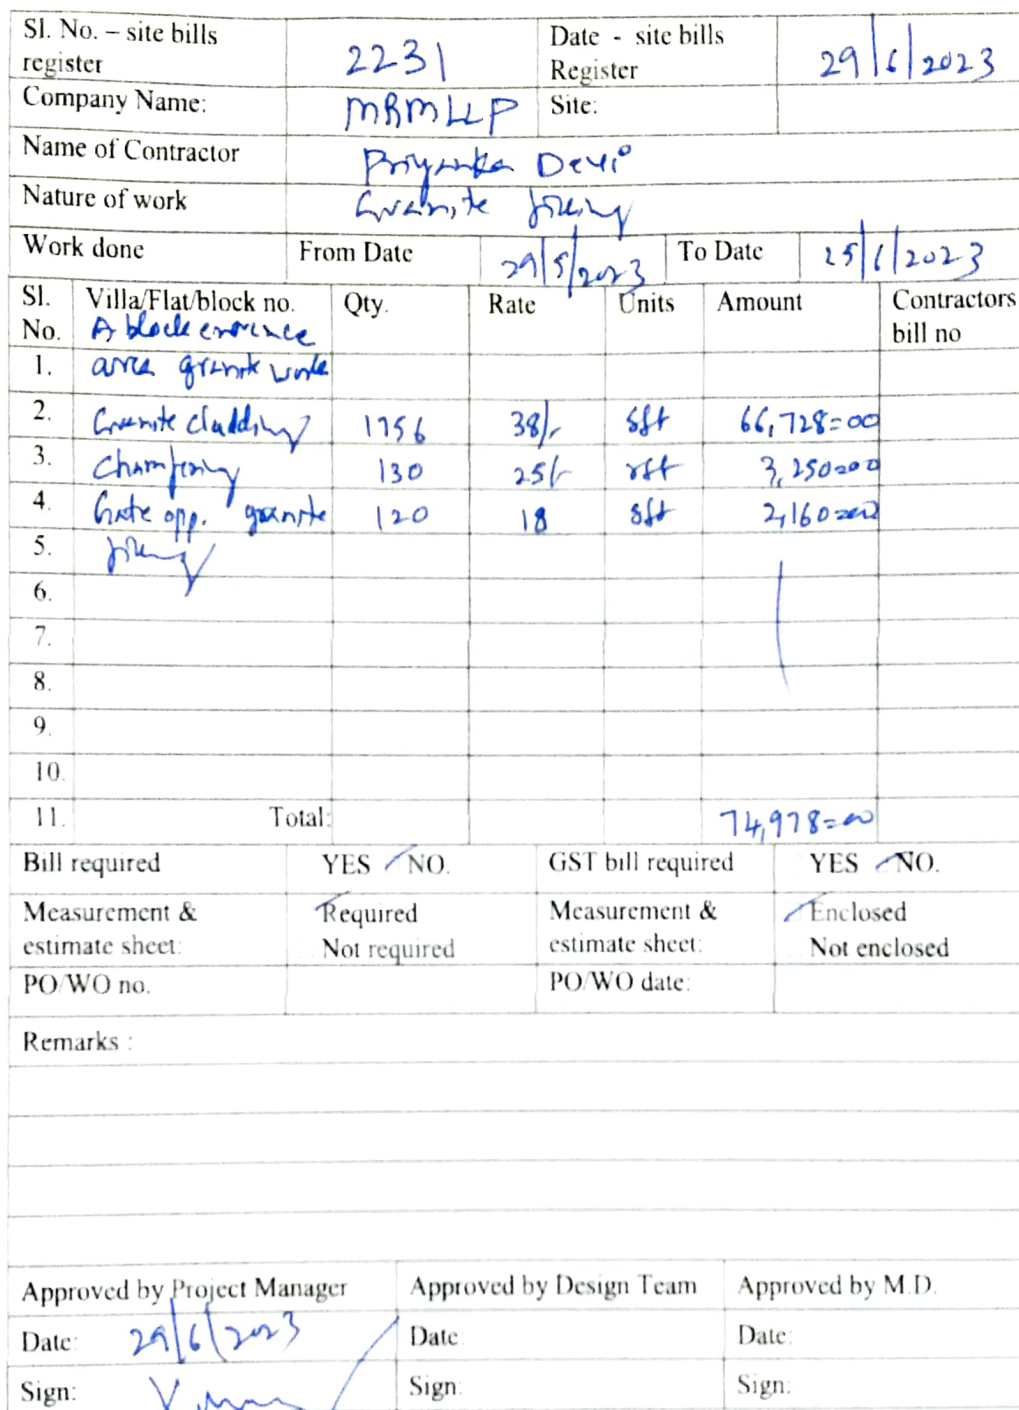 Sl. No. – site bills register 2231 Date - site bills Register 29/6/2023
Company Name: MRMLLP Site:
Name of Contractor Priyanka Devi
Nature of work Granite fixing
Work done From Date 29/5/2023 To Date 25/6/2023
Sl. No. Villa/Flat/block no. Qty. Rate Units Amount Contractors bill no
A block enterance
1. area granite work
2. Granite cladding 1756 38/- sft 66,728=00
3. Chamfering 130 25/- rft 3,250=00
4. Gate opp. granite 120 18 sft 2,160=00
5. fixing
6.
7.
8.
9.
10.
11. Total: 74,978=00
Bill required YES NO. GST bill required YES NO.
Measurement & estimate sheet: Required Not required Measurement & estimate sheet: Enclosed Not enclosed
PO/WO no. PO/WO date:
Remarks :
Approved by Project Manager Approved by Design Team Approved by M.D.
Date: 29/6/2023 Date: Date:
Sign: Sign: Sign: